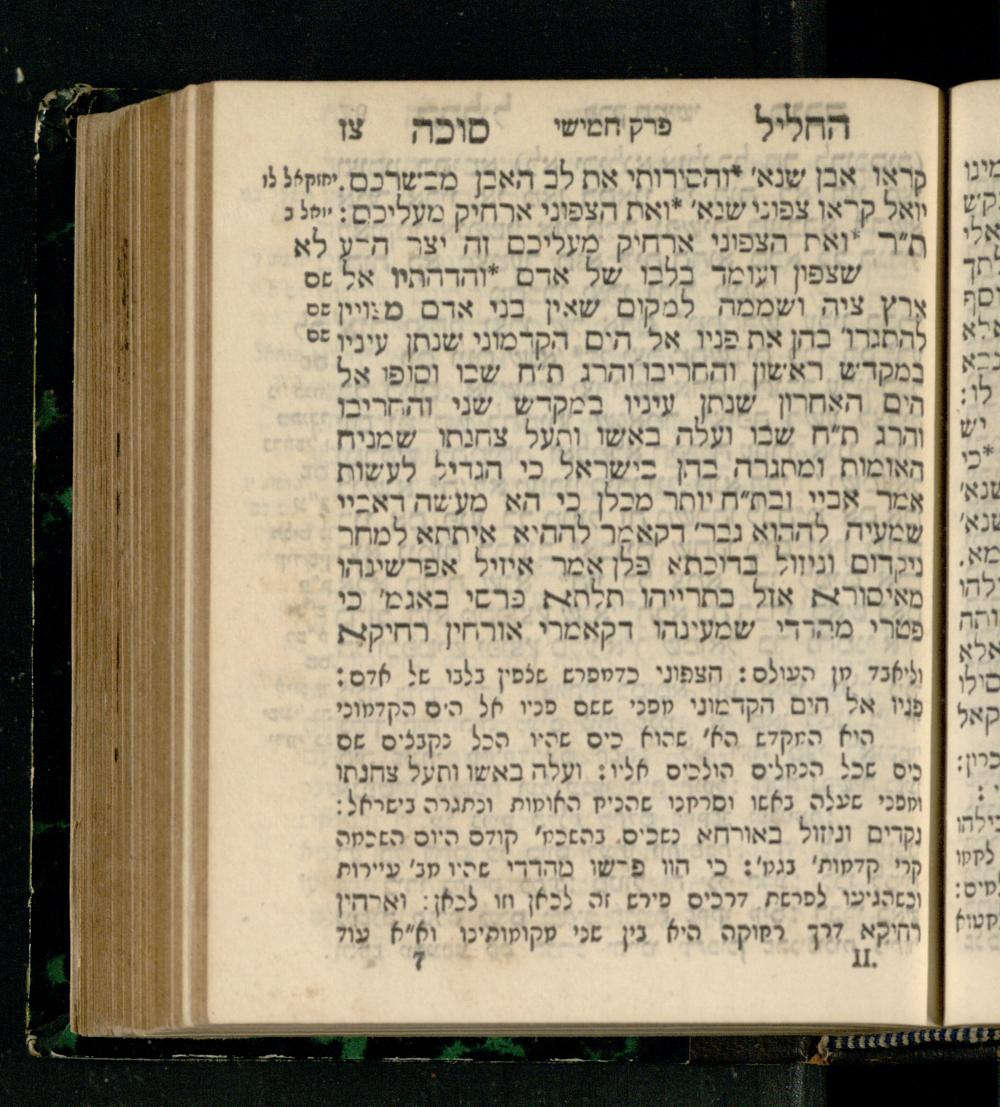 החליל פרק חמישי סוכה צז
קראו אבן שנא׳ *והסירותי את לב האבן מבשרכם. יחזקאל לו
יואל קראו צפוני שנא׳ *ואת הצפוני ארחיק מעליכם: יואל ב
ת״ר *ואת הצפוני ארחיק מעליכם זה יצר ה־ע לא
שצפון ועומד בלבו של אדם *והדחתיו אל שם
ארץ ציה ושממה למקום שאין בני אדם מצויין שם
להתגרו׳ בהן את פניו אל הים הקדמוני שנתן עיניו שם
במקדש ראשון והחריבו והרג ת״ח שבו וסופו אל
הים האחרון שנתן עיניו במקדש שני והחריבו
והרג ת״ח שבו ועלה באשו ותעל צחנתו שמניח
האומות ומתגרה בהן בישראל כי הגדיל לעשות
אמר אביי ובת״ח יותר מכלן כי הא מעשה דאביי
שמעיה לההוא גבר׳ דקאמר לההיא איתתא למחר
ניקדום וניזול בדוכתא פלן אמר איזיל אפרשינהו
מאיסורא אזל בתרייהו תלתא פרסי באגמ׳ כי
פטרי מהדדי שמעינהו דקאמרי אורחין רחיקא
וליאבד מן העולם: הצפוני כדמפרש שלפין בלבו של אדם:
פניו אל הים הקדמוני מפני ששם פניו אל הים הקדמוני
הוא המקדש הא׳ שהוא כים שהיו הכל נקבצים שם
כים שכל הנחלים הולכים אליו: ועלה באשו ותעל צחנתו
ומפני שעלה באשו וסרחנו שהניח האומות ונתגרה בישראל:
נקדים וניזול באורחא כשכים. בהשכמ׳ קודם היום השכמה
קרי קדמות׳ בגמ׳: כי הוו פרשו מהדדי שהיו מב׳ עיירות
וכשהגיעו לפרשת דרכים פירש זה לכאן וזו לכאן: וארהין
רחיקא דרך רחוקה היא בין שני מקומותינו וא״א עוד
II. 7